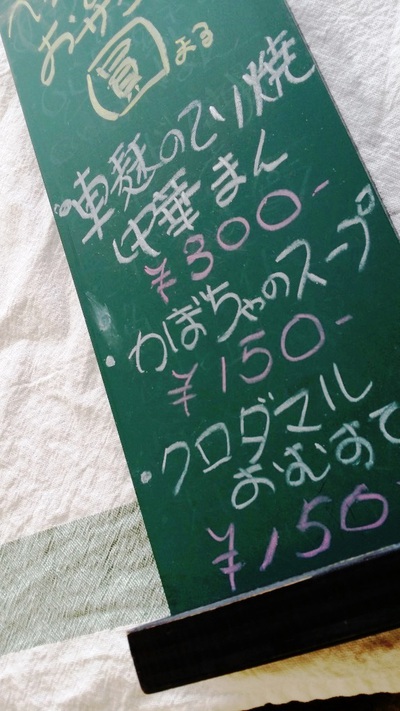 お弁
圓 まる
・車麩のてり焼
中華まん
¥300-
・かぼちゃのスープ
¥150-
・クロダマル
おむすて
¥150